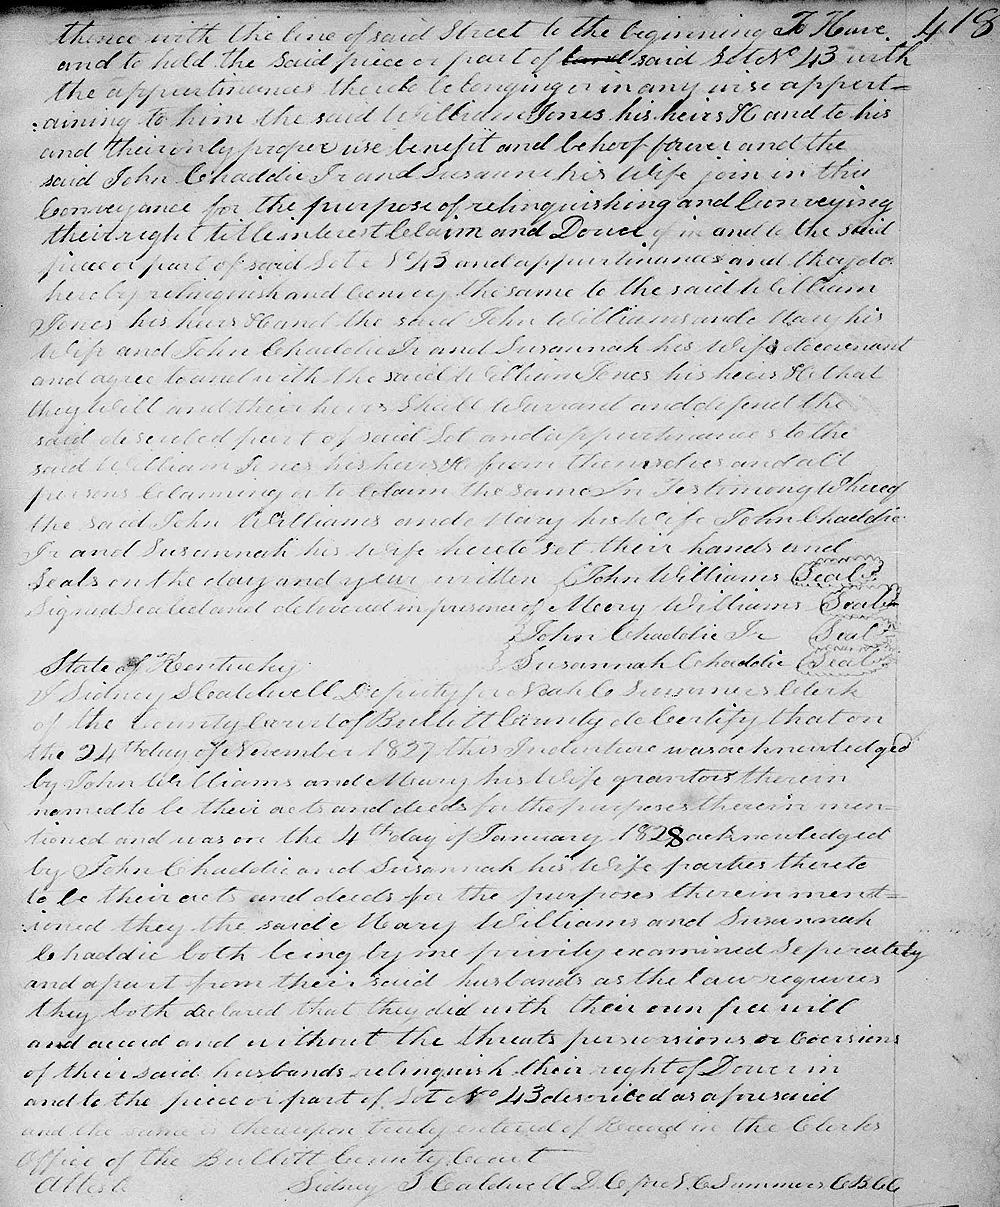 418
thence with the line of said Street to the beginning To Have
and to hold the said piece or part of land said Lot No 43 with
the appurtinances thereto belonging or in any wise appert=
:aining to him the said William Jones his heirs &c and to his
and their only proper use benefit and behoof forever and the
said John Chaddic Jr and Susannah his Wife join in this
Conveyance for the purpose of relinquishing and Conveying
their right title interest Claim and Dower of in and to the said
piece or part of said Lot No 43 and appurtinances and they do
hereby relinquish and Convey the same to the said William
Jones his heirs &c and the said John Williams and Mary his
Wife and John Chaddic Jr and Susannah his Wife do covenant
and agree to and with the said William Jones his heirs &c that
they Will and their heirs Shall Warrant and defend the
said described part of said Lot and appurtinances to the
said William Jones his heirs &c from themselves and all
persons Claiming or to Claim the same In Testimony Whereof
the said John Williams and Mary his Wife John Chaddic
Jr and Susannah his Wife hereto set their hands and
Seals on the day and year written John Williams Seal
Signed Sealed and delivered in presence of Mary Williams Seal
John Chaddic Jr Seal
Susannah Chaddic Seal
State of Kentucky
I Sidney S Caldwell Deputy for Noah C Summers Clerk
of the County Court of Bullitt County do Certify that on
the 24th day of November 1827 this Indenture was acknowledged
by John Williams and Mary his Wife grantors therein
named to be their acts and deeds for the purposes therein men=
tioned and was on the 4th day of January 1828 acknowledged
by John Chaddic and Susannah his Wife parties thereto
to be their acts and deeds for the purposes therein ment=
:ioned they the said Mary Williams and Susannah
Chaddic both being by me privily examined Seperately
and apart from their said husbands as the law requires
they both declared that they did with their own free will
and accord and without the threats persuasions or Coersions
of their said husbands relinquish their right of Dower in
and to the piece or part of Lot No 43 described as aforesaid
and the same is thereupon truly entered of Record in the Clerks
Office of the Bullitt County Court
Attest Sidney S Caldwell D.C for N.C Summers C B C C